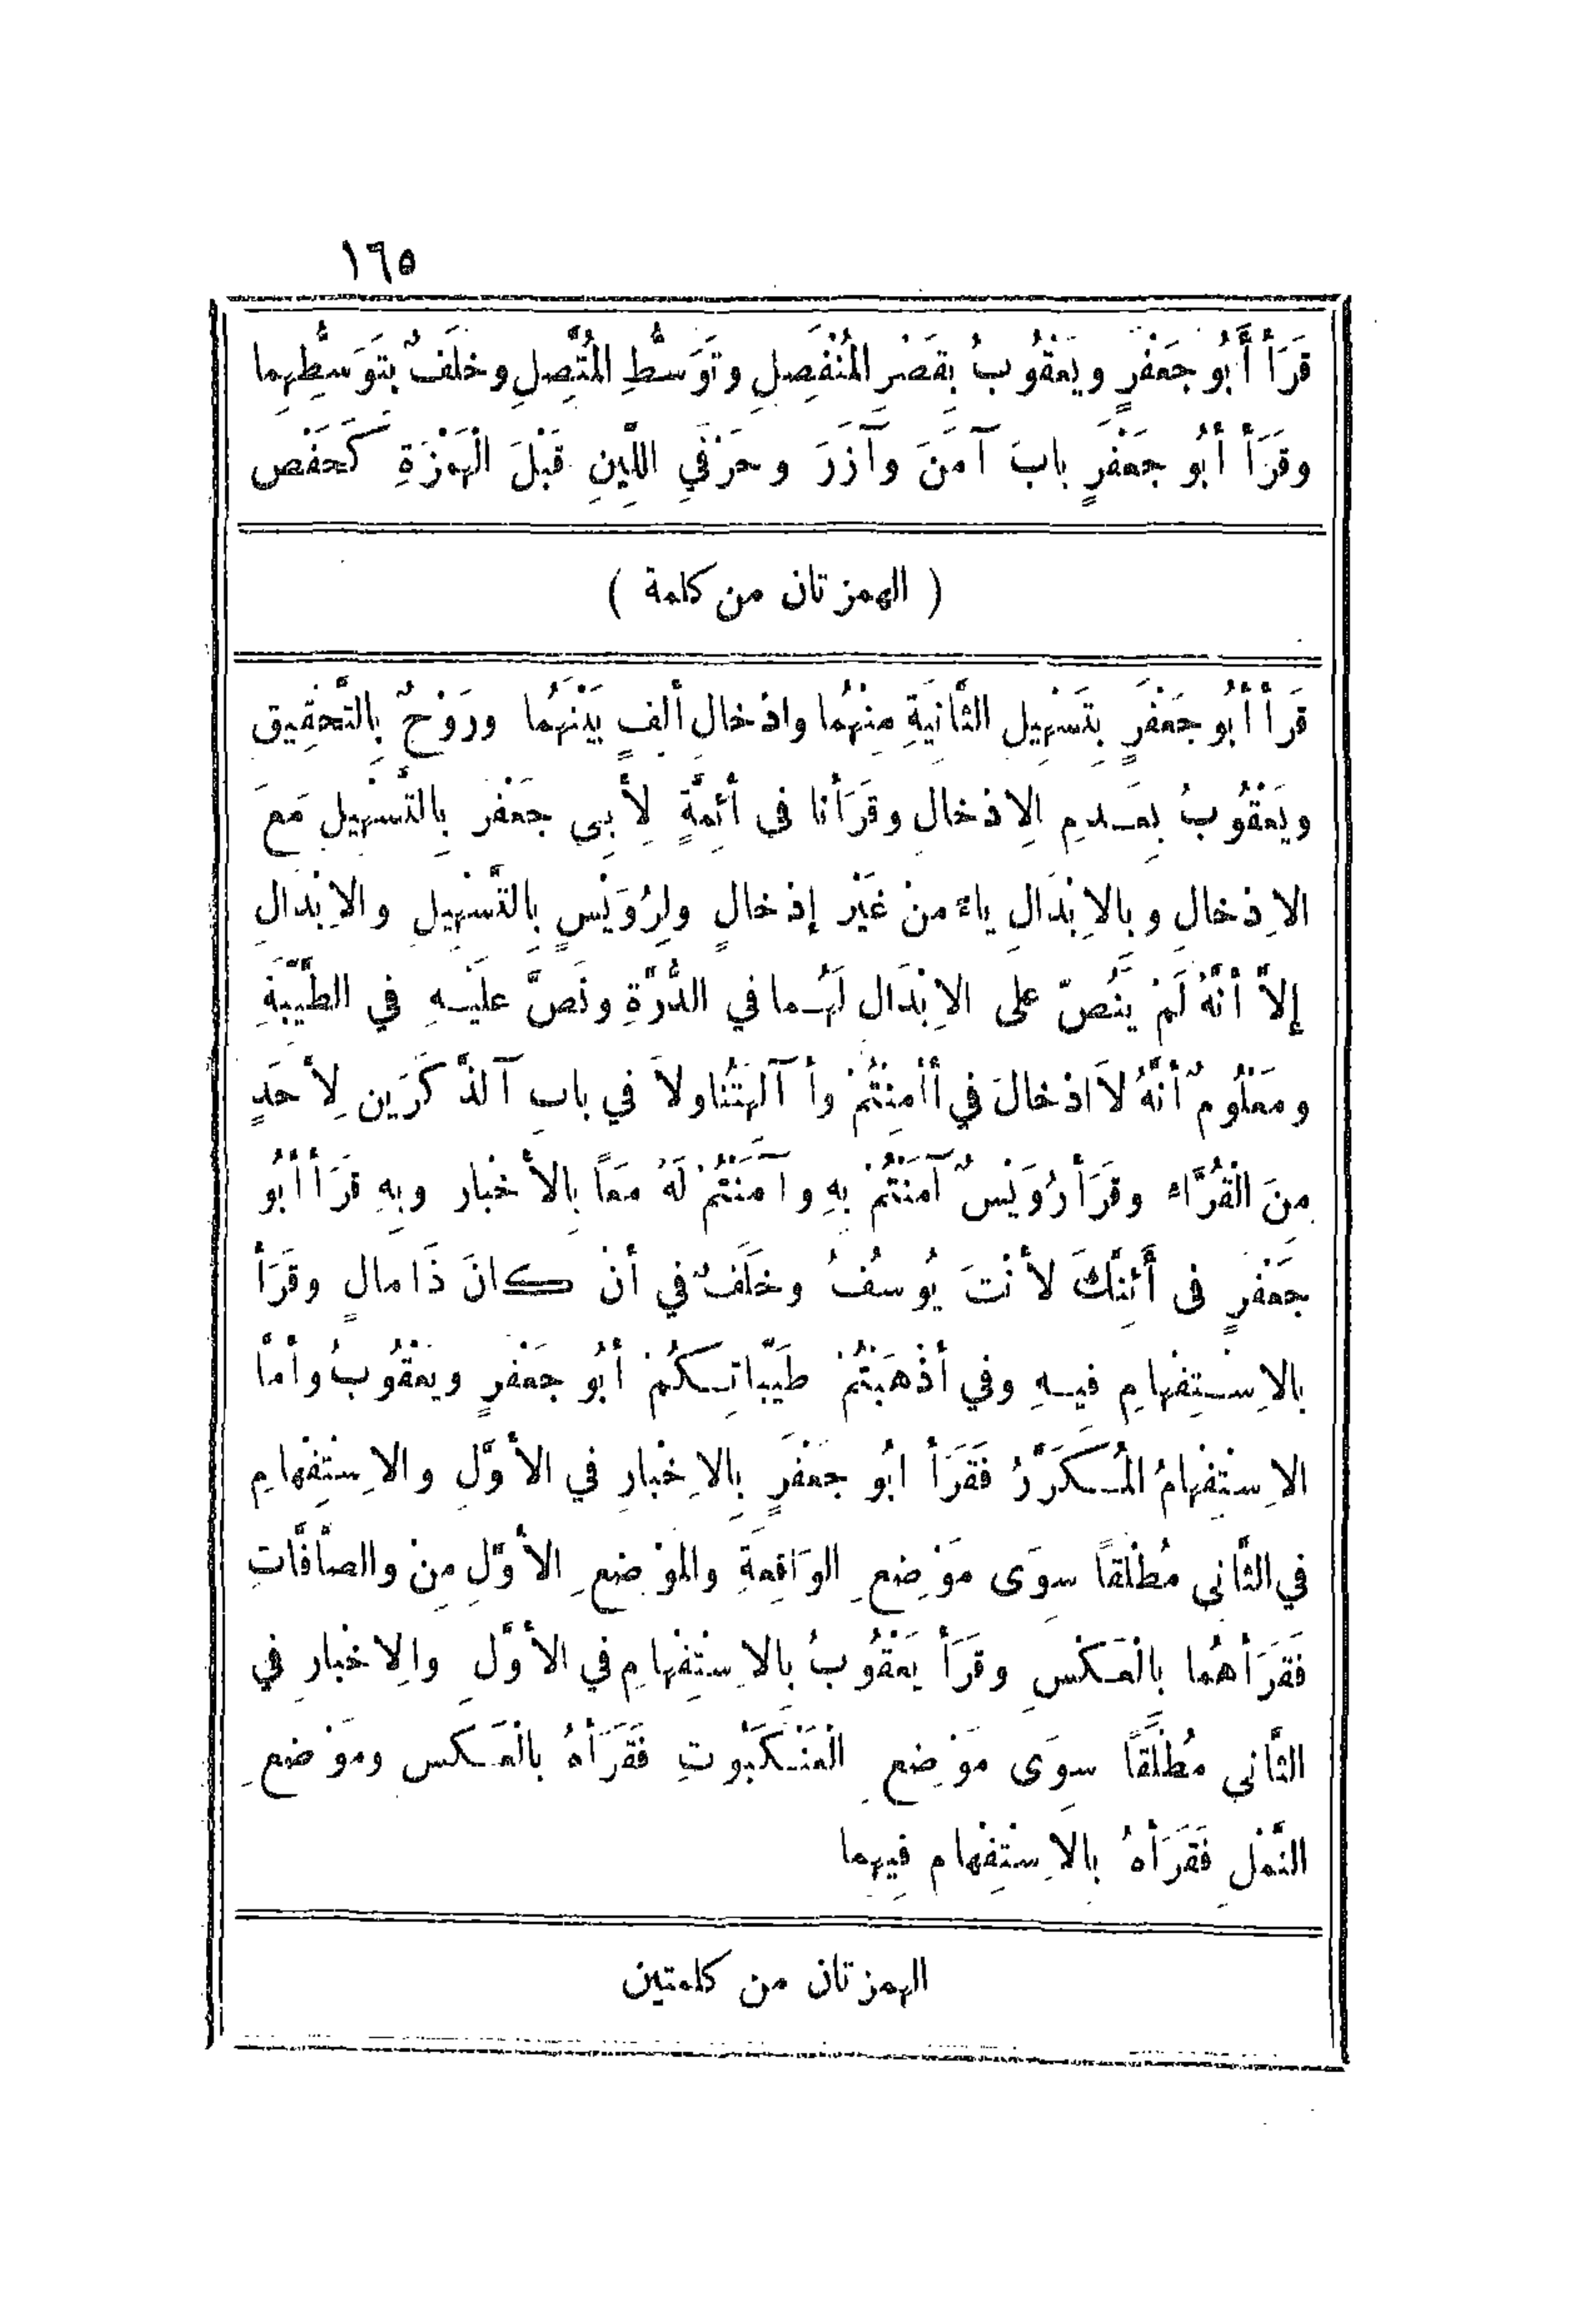 ١٦٥
قَرَأَ أَبُو جَعْفَرٍ ويَعْقُوبُ بِقَصْرِ المُنْفَصِلِ وتَوَسُّطِ المُتَّصِلِ وخَلَفٌ بِتَوَسُّطِهِما
وقَرَأ أبُو جَعْفَرٍ بابَ آمَنَ وآزَرَ وحَرْفَيِ اللِّينِ قَبْلَ الْهَمْزَةِ كَحَفْص
( الهمزتان من كلمة )
قَرَأ أبُو جَعْفَرٍ بِتَسْهِيلِ الثَّانِيَةِ مِنْهُما وادْخالِ ألِفٍ بَيْنَهُمَا ورَوْحٌ بِالتَّحْقِيق
ويَعْقُوبُ بِعَدمِ الإدْخالِ وقَرَأنا في أئِمَّةٍ لِأَبِي جَعْفَر بِالتَّسْهِيلِ مَعَ
الاِدْخالِ وبالاِبْدَالِ ياءً منْ غَيْرِ إدْخالٍ ولِرُوَيْسٍ بِالتَّسْهِيلِ والاِبْدَالِ
إلاَّ أنَّهُ لَمْ يَنُصّ على الاِبْدَال لَهُما في الدُّرَّةِ ونَصَّ عَلَيْهِ في الطَّيِّبَةِ
ومَعْلُومٌ أنَّهُ لاَ ادْخالَ في أأمِنْتُمْ وأ آلهَتُنا ولاَ في بابِ آلذَّكَرَين لِأحَدٍ
مِنَ الْقُرَّاء وقَرَأ رُوَيْسٌ آمَنْتُمْ بِهِ وآمَنْتُمْ لَهُ مَعاً بِالأخْبار وبِهِ قَرَأ أبُو
جَعْفَرٍ في أَئِنَّكَ لأنْتَ يُوسُفُ وخَلَفٌ في أنْ كانَ ذَا مالٍ وقَرَأ
بالاِسْتِفْهامِ فيهِ وفي أذْهَبْتُمْ طَيِّباتِكُمْ أبُو جَعْفَرٍ ويَعْقُوبُ وأمَّا
الاِسْتِفْهامُ المُكَرَّرُ فَقَرَأ ابُو جَعْفَرٍ بِالاِخْبارِ في الأوَّلِ والاِسْتِفْهامِ
في الثَّاني مُطْلَقاً سِوَى مَوْضِعِ الوَاقِعَةِ والموْضِعِ الأوَّلِ مِنْ والصَّافَّاتِ
فَقَرَأهُما بِالْعَكْسِ وقَرَأ يَعْقُوبُ بِالاِسْتِفْهامِ في الأوَّلِ والِاخْبارِ في
الثَّاني مُطْلَقاً سِوَى مَوْضِعِ الْعَنْكَبُوتِ فَقَرَأهُ بالْعَكْس ومَوْضعِ
النَّمْلِ فَقَرَأهُ بِالاِسْتِفْهام فِيهِما
الهمزتان من كلمتين